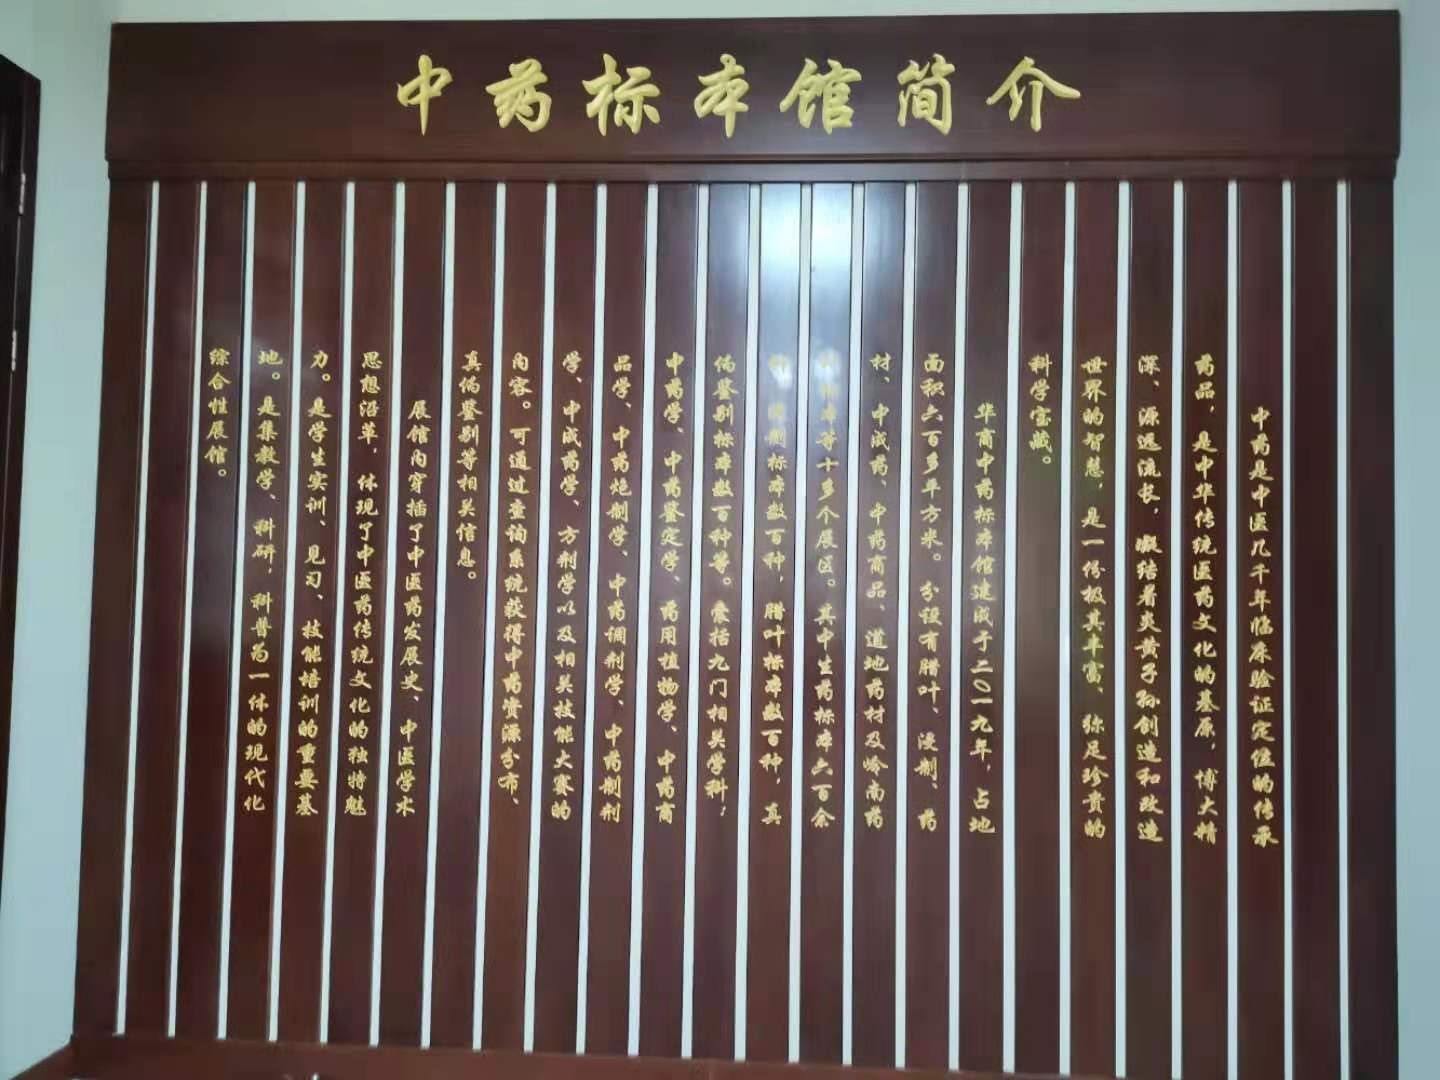 中药标本馆简介
中药是中医几千年临床验证定位的传承
药品，是中华传统医药文化的基原，博大精
深、源远流长，凝结着炎黄子孙创造和改造
世界的智慧，是一份极其丰富、弥足珍贵的
科学宝藏。
华商中药标本馆建成于二〇一九年，占地
面积六百多平方米。分设有腊叶、浸制、药
材、中成药、中药商品、道地药材及岭南药
标本等十多个展区。其中生药标本六百余
浸制标本数百种，腊叶标本数百种，真
伪鉴别标本数百种等。囊括九门相关学科，
中药学、中药鉴定学、药用植物学、中药商
品学、中药炮制学、中药调剂学、中药制剂
学、中成药学、方剂学以及相关技能大赛的
内容。可通过查询系统获得中药资源分布、
真伪鉴别等相关信息。
展馆内穿插了中医药发展史、中医学术
思想沿革，体现了中医药传统文化的独特魅
力。是学生实训、见习、技能培训的重要基
地。是集教学、科研，科普为一体的现代化
综合性展馆。